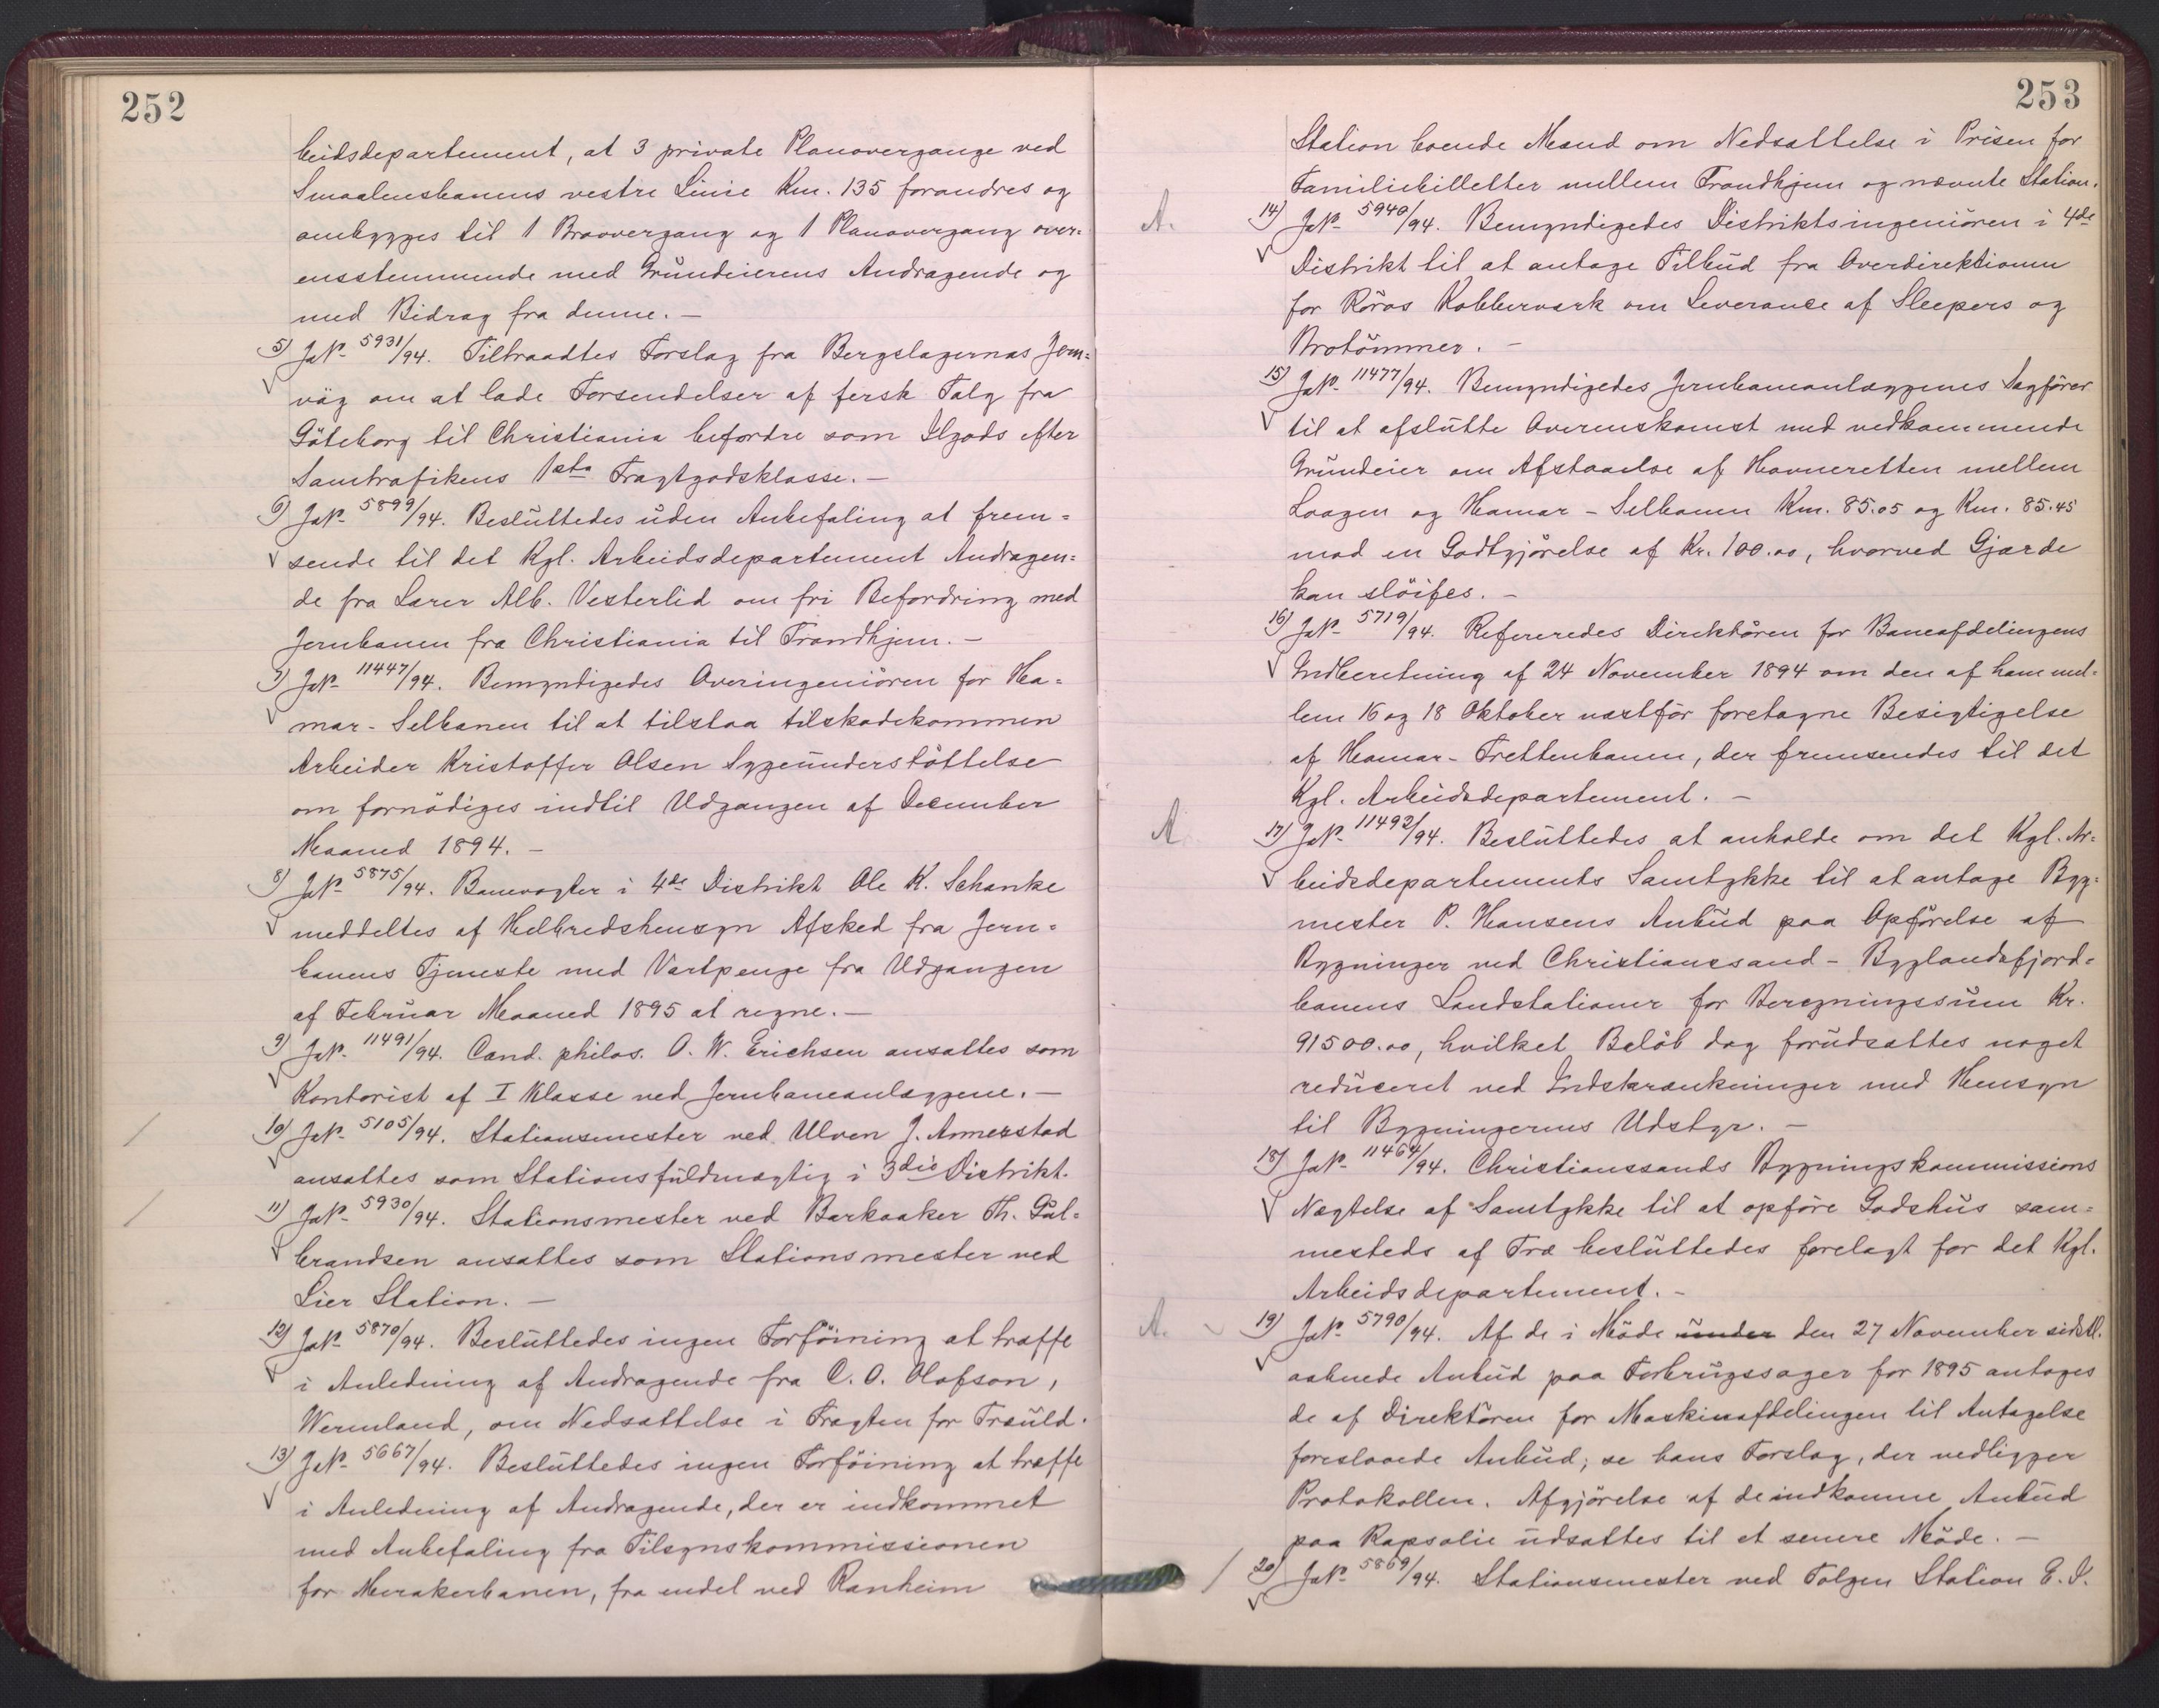 252
beidsdepartement, at 3 private Planovergange ved
Smaalensbanens vestre Linie Km. 135 forandres og
ombygges til 1 Broovergang og 1 Planovergang over=
ensstemmende med Grundeierens Andragende og
med Bidrag fra denne. —
5) JN° 5931/94. Tiltraadtes Forslag fra Bergslagernas Jern=
väg om at lade Forsendelser af fersk Talg fra
Göteborg til Christiania befordre som Ilgods efter
Samtrafikens 1ste Fragtgodsklasse. —
6) JN° 5899/94. Besluttedes uden Anbefaling at frem=
sende til det Kgl. Arbeidsdepartement Andragen=
de fra Lærer Alb. Vesterlid om fri Befordring med
Jernbanen fra Christiania til Trondhjem. —
7) JN° 11447/94. Bemyndigedes Overingeniören for Ha=
mar-Selbanen til at tilstaa tilskadekommen
Arbeider Kristoffer Olsen Sygeunderstöttelse
om fornödiges indtil Udgangen af December
Maaned 1894. —
8) JN° 5875/94. Banevogter i 4de Distrikt Ole K. Schanke
meddeltes af Helbredshensyn Afsked fra Jern=
banens Tjeneste med Vartpenge fra Udgangen
af Februar Maaned 1895 at regne. —
9) JN° 11491/94. Cand. philos. O. W. Erichsen ansattes som
Kontorist af I Klasse ved Jernbaneanlæggene. —
10) JN° 5105/94. Stationsmester ved Ulven J. Annerstad
ansattes som Stationsfuldmægtig i 3die Distrikt.
11) JN° 5930/94. Stationsmester ved Barkaaker Th. Gul=
brandsen ansattes som Stationsmester ved
Lier Station. —
12) JN° 5870/94. Besluttedes ingen Forföining at træffe
i Anledning af Andragende fra C. O. Olofson,
Wermland, om Nedsættelse i Fragten for Træuld.
13) JN° 5667/94. Besluttedes ingen Forföining at træffe
i Anledning af Andragende, der er indkommet
med Anbefaling fra Tilsynskommissionen
for Merakerbanen, fra endel ved Ranheim
253
Station boende Mænd om Nedsættelse i Prisen for
Familiebilletter mellem Trondhjem og nævnte Station.
A. 14) JN° 5940/94. Bemyndigedes Distriktsingeniören i 4de
Distrikt til at antage Tilbud fra Overdirektionen
for Röros Kobberværk om Leverance af Sleepers og
Brotömmer. —
15) JN° 11477/94. Bemyndigedes Jernbaneanlæggenes Sagförer
til at afslutte Overenskomst med vedkommende
Grundeier om Afstaaelse af Havneretten mellem
Laagen og Hamar-Selbanen Km. 85.05 og Km. 85.45
mod en Godtgjörelse af Kr. 100.00, hvorved Gjærde
kan slöifes. —
16) JN° 5719/94. Refereredes Direktören for Baneafdelingens
Indberetning af 24 November 1894 om den af ham mel=
lem 16 og 18 Oktober næstför foretagne Besigtigelse
af Hamar-Trettenbanen, der fremsendes til det
Kgl. Arbeidsdepartement. —
A. 17) JN° 11492/94. Besluttedes at anholde om det Kgl. Ar=
beidsdepartements Samtykke til at antage Byg=
mester P. Hansens Anbud paa Opförelse af
Bygninger ved Christianssand-Byglandsfjord=
banens Landstationer for Beregningssum Kr.
91500.00, hvilket Belöb dog forudsattes noget
reduceret ved Indskrænkninger med Hensyn
til Bygningernes Udstyr. —
18) JN° 11464/94. Christianssands Bygningskommissions
Nægtelse af Samtykke til at opföre Godshus sam=
mesteds af Træ besluttedes forelagt for det Kgl.
Arbeidsdepartement. —
A. 19) JN° 5790/94. Af de i Möde under den 27 November sidstl.
aabnede Anbud paa Forbrugssager for 1895 antoges
de af Direktören for Maskinafdelingen til Antagelse
foreslaaede Anbud; se hans Forslag, der vedligger
Protokollen. Afgjörelse af de indkomne Anbud
paa Rapsolie udsattes til et senere Möde. —
20) JN° 5869/94. Stationsmester ved Tolgen Station E. I.